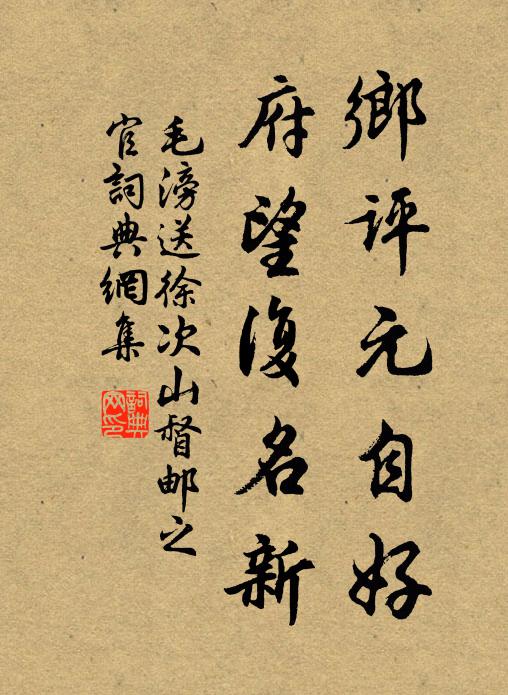 鄉評元自好
府望復名新
毛滂送徐次山督邮之
官詞典網集
詞典
网印